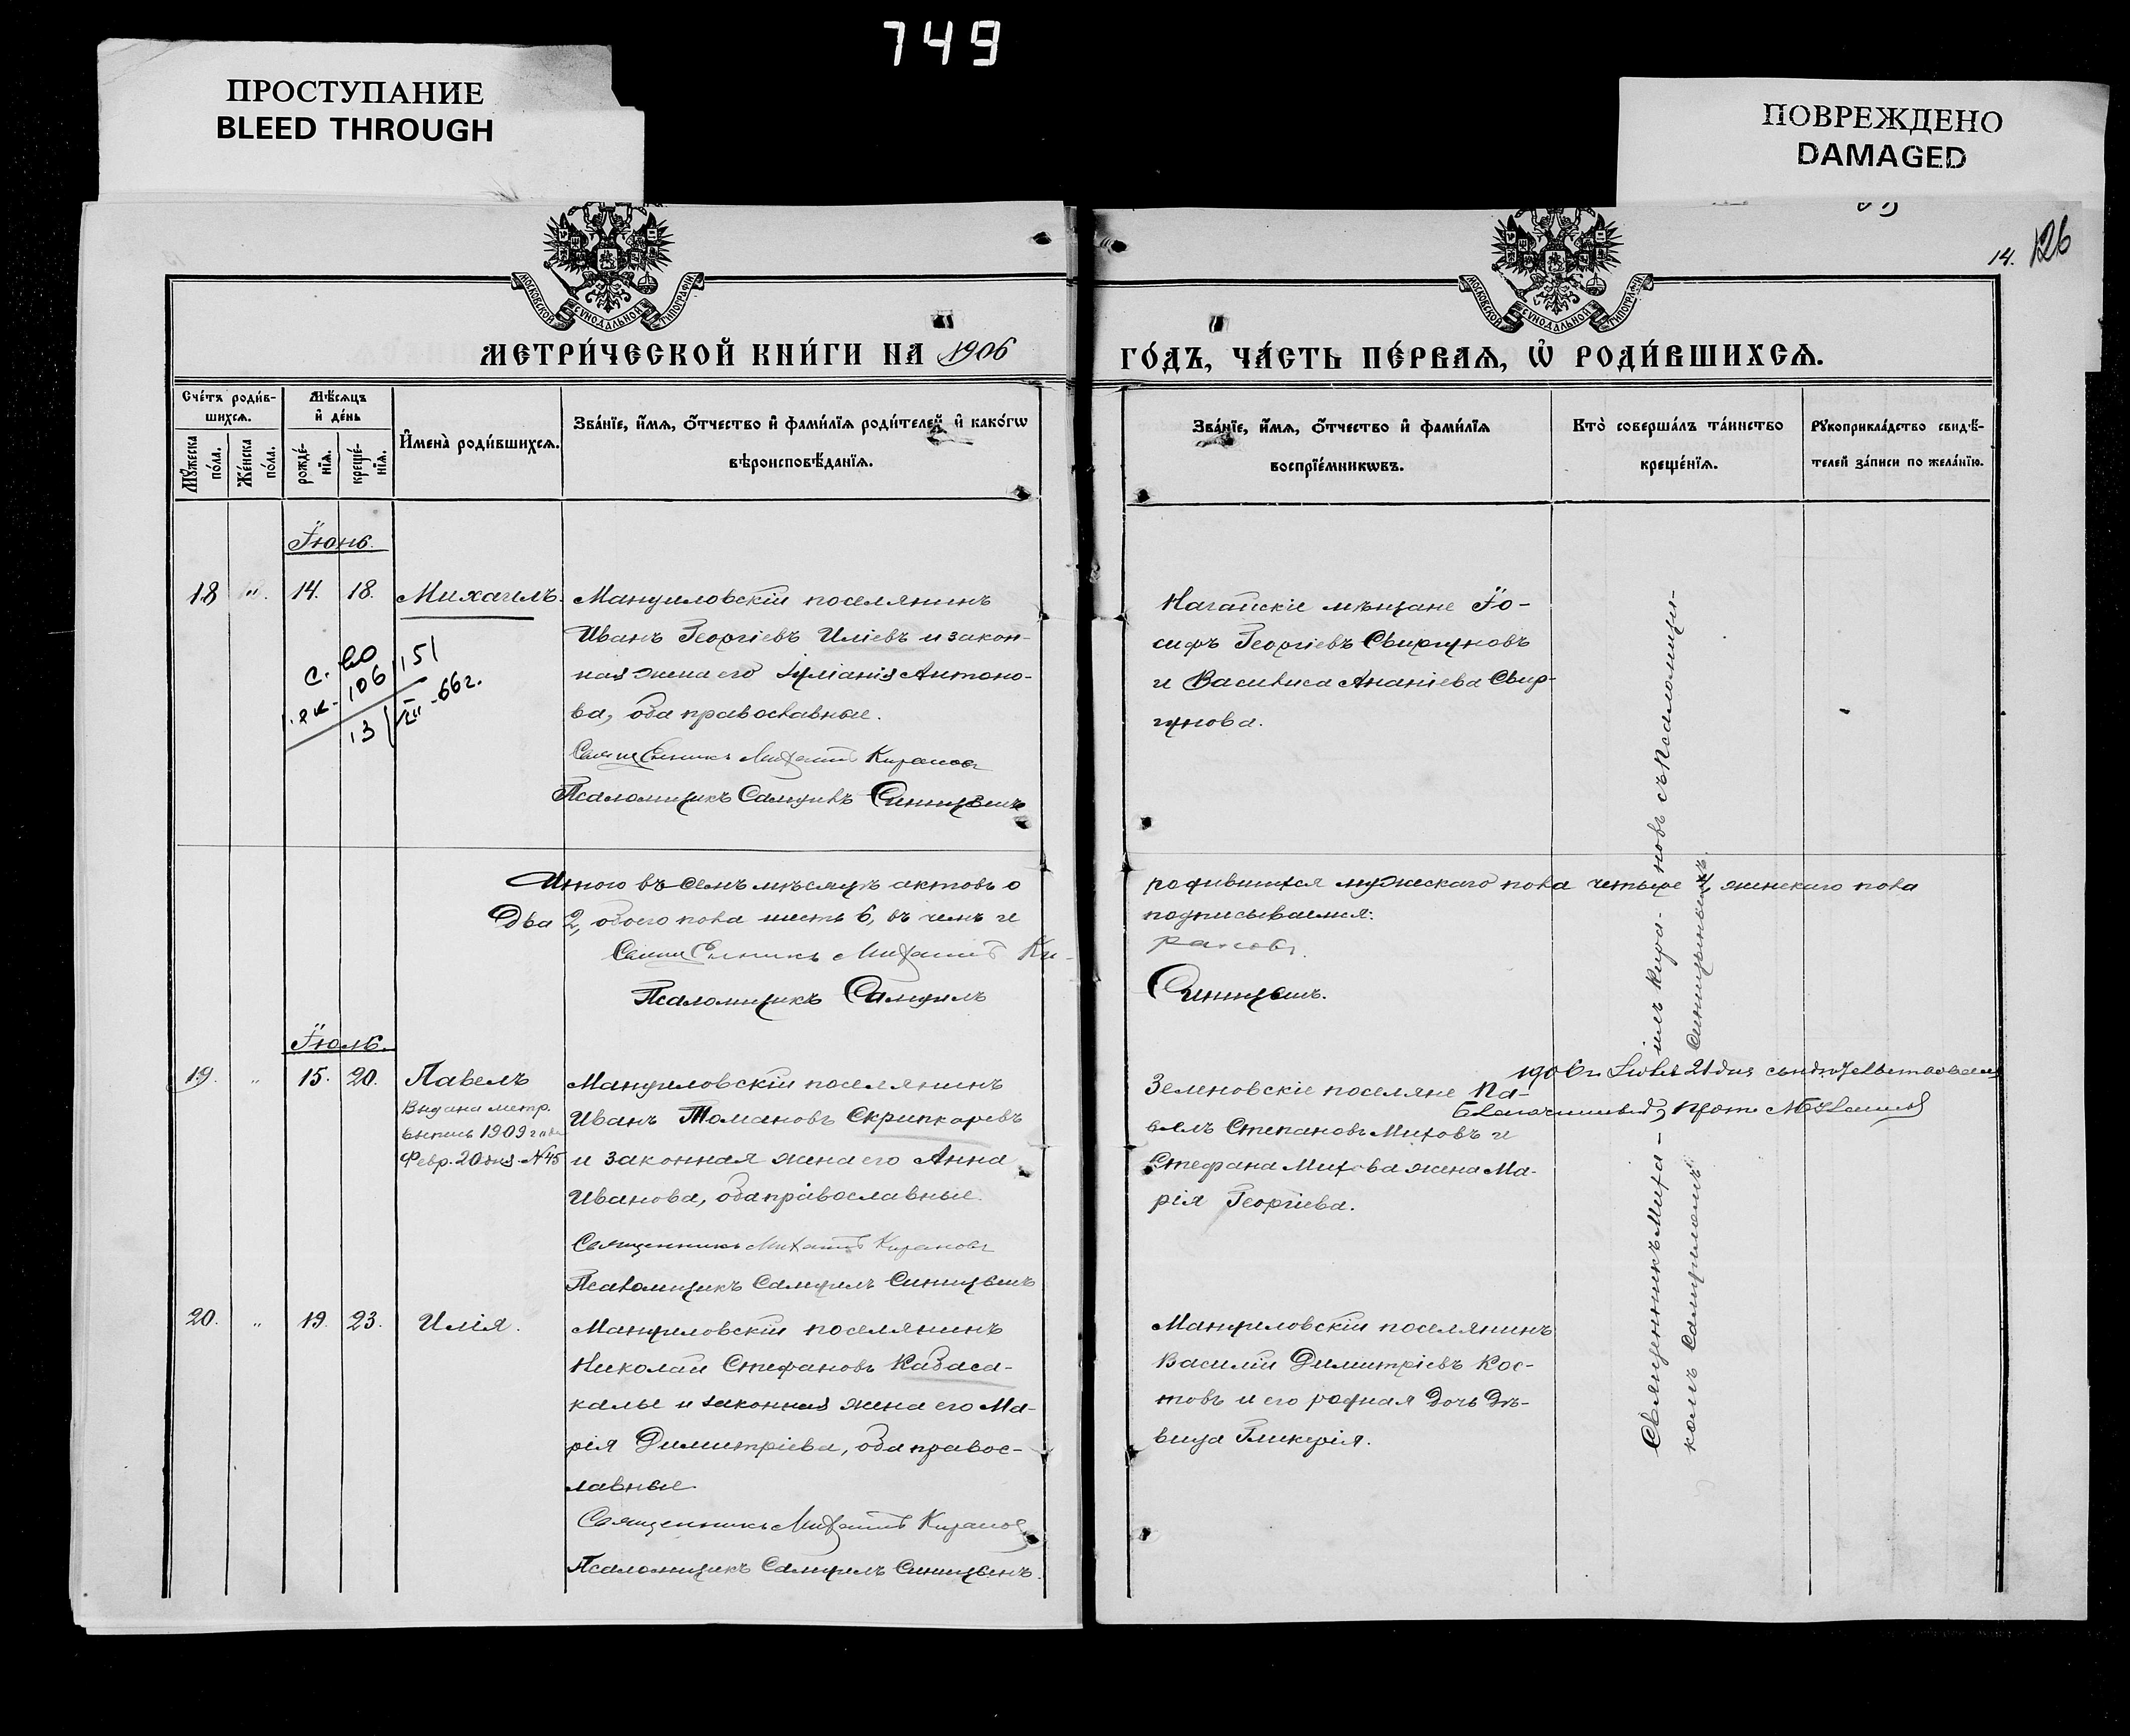 749
ПРОСТУПАНИЕ
BLEED THROUGH
ПОВРЕЖДЕНО
DAMAGED
14. 126
МОСКОВСКОЙ СѴНОДАЛЬНОЙ ТИПОГРАФІИ
МОСКОВСКОЙ СѴНОДАЛЬНОЙ ТИПОГРАФІИ
МЕТРИ́ЧЕСКОЙ КНИ́ГИ НА 1906
ГО́ДЪ, ЧА́СТЬ ПЕ́РВАѦ, Ѡ҆ РОДИ́ВШИХСѦ.
Сче́тъ роди́в-
шихсѧ.
Мѣ́сѧцъ
и҆ де́нь
Мꙋ́жеска
по́ла.
Же́нска
по́ла.
рожде́-
нїѧ.
креще́-
нїѧ.
И҆мена̀ роди́вшихсѧ.
Зва́нїе, и҆́мѧ, ѻ҆́тчество и҆ фами́лїѧ роди́телей и҆ како́гѡ
вѣроисповѣ́данїѧ.
Зва́нїе, и҆́мѧ, ѻ҆́тчество и҆ фами́лїѧ
воспрїе́мникѡвъ.
Кто̀ соверша́лъ та́инство
креще́нїѧ.
Рꙋкоприкла́дство свидѣ́-
телей за́писи по жела́нїю.
Іюнь.
18 „ 14. 18. Михаилъ.
Мануиловскій поселянинъ
Иванъ Георгіевъ Иліевъ и закон-
ная жена его Іуліанія Антоно-
ва, оба православные.
Священникъ Михаилъ Кирановъ
Псаломщикъ Самуилъ Синицынъ
с.
106 151
13/III-66г.
Нагайскіе мѣщане Іо-
сифъ Георгіевъ Свиргуновъ
и Василиса Ананіева Свир-
гунова.
Итого въ семъ мѣсяцѣ актовъ о
родившихся мужескаго пола четыре 4, женскаго пола
два 2, обоего пола шесть 6, въ чемъ и
подписываемся:
Священникъ Михаилъ Ки-
рановъ.
Псаломщикъ Самуилъ
Синицынъ.
Іюль.
19. „ 15. 20. Павелъ
Выдана метр.
выпись 1909 года
Февр. 20 дня. №45
Мануиловскій поселянинъ
Иванъ Томановъ Скрипкаревъ
и законная жена его Анна
Иванова, оба православные.
Священникъ Михаилъ Кирановъ
Псаломщикъ Самуилъ Синицынъ
Зеленовскіе поселяне Па-
велъ Степановъ Митовъ и
Стефана Митова жена Ма-
рія Георгіева.
1906 г. Іюля 21 дня свидѣтельствовалъ
Благочинный, Прот.
20. „ 19. 23. Илія.
Мануиловскій поселянинъ
Николай Стефановъ Кабаса-
калы и законная жена его Ма-
рія Димитріева, оба правос-
лавные.
Священникъ Михаилъ Кирановъ
Псаломщикъ Самуилъ Синицынъ.
Мануиловскій поселянинъ
Василій Димитріевъ Кос-
товъ и его родная дочь дѣ-
вица Гликерія.
Священникъ Миха-илъ Кира-новъ съ псаломщи-
комъ Самуиломъ Синицынымъ.